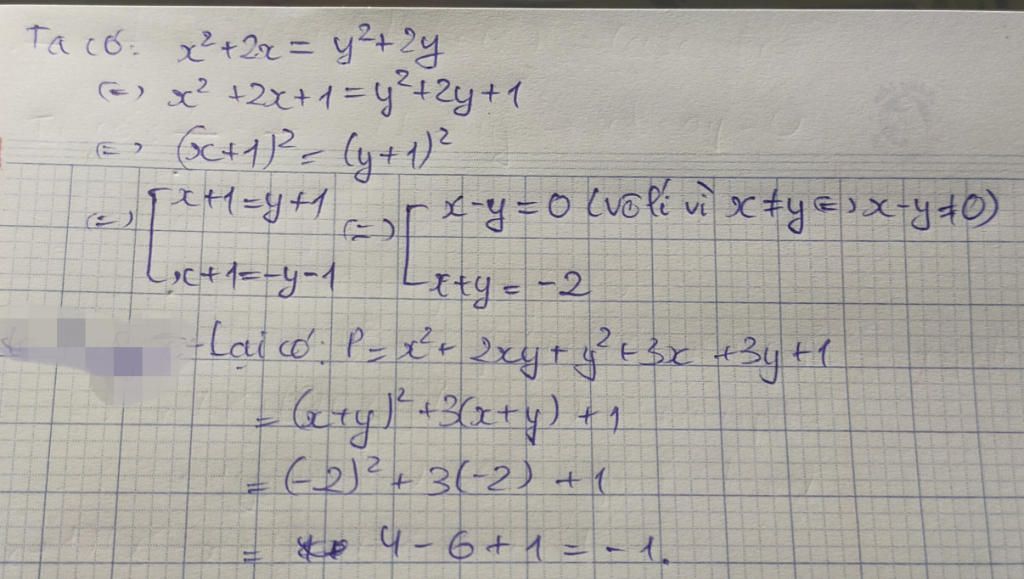 Ta có: x²+2x = y²+2y
(=) x² +2x+1=y²+2y+1
(=) (x+1)² = (y+1)²
(=) [ x+1=y+1 (=) [ x-y=0 (vô lí vì x≠y (=) x-y≠0)
x+1=-y-1 x+y = -2
Lại có: P = x²+ 2xy+y²+3x +3y+1
= (x+y)² +3(x+y) +1
= (-2)² + 3(-2) +1
= 4 - 6 + 1 = -1.